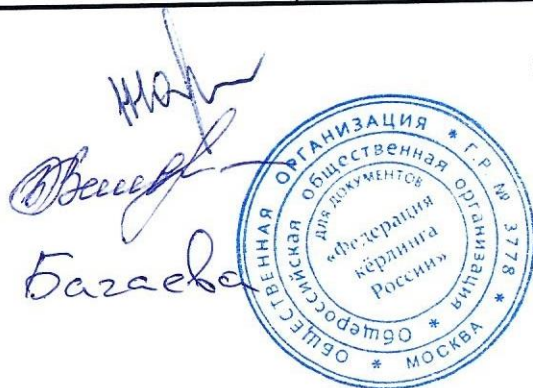 Багаева
ОБЩЕСТВЕННАЯ ОРГАНИЗАЦИЯ * Г.Р. № 3778 * МОСКВА *
Общероссийская общественная организация *
ДЛЯ ДОКУМЕНТОВ
«Федерация
кёрлинга
России»